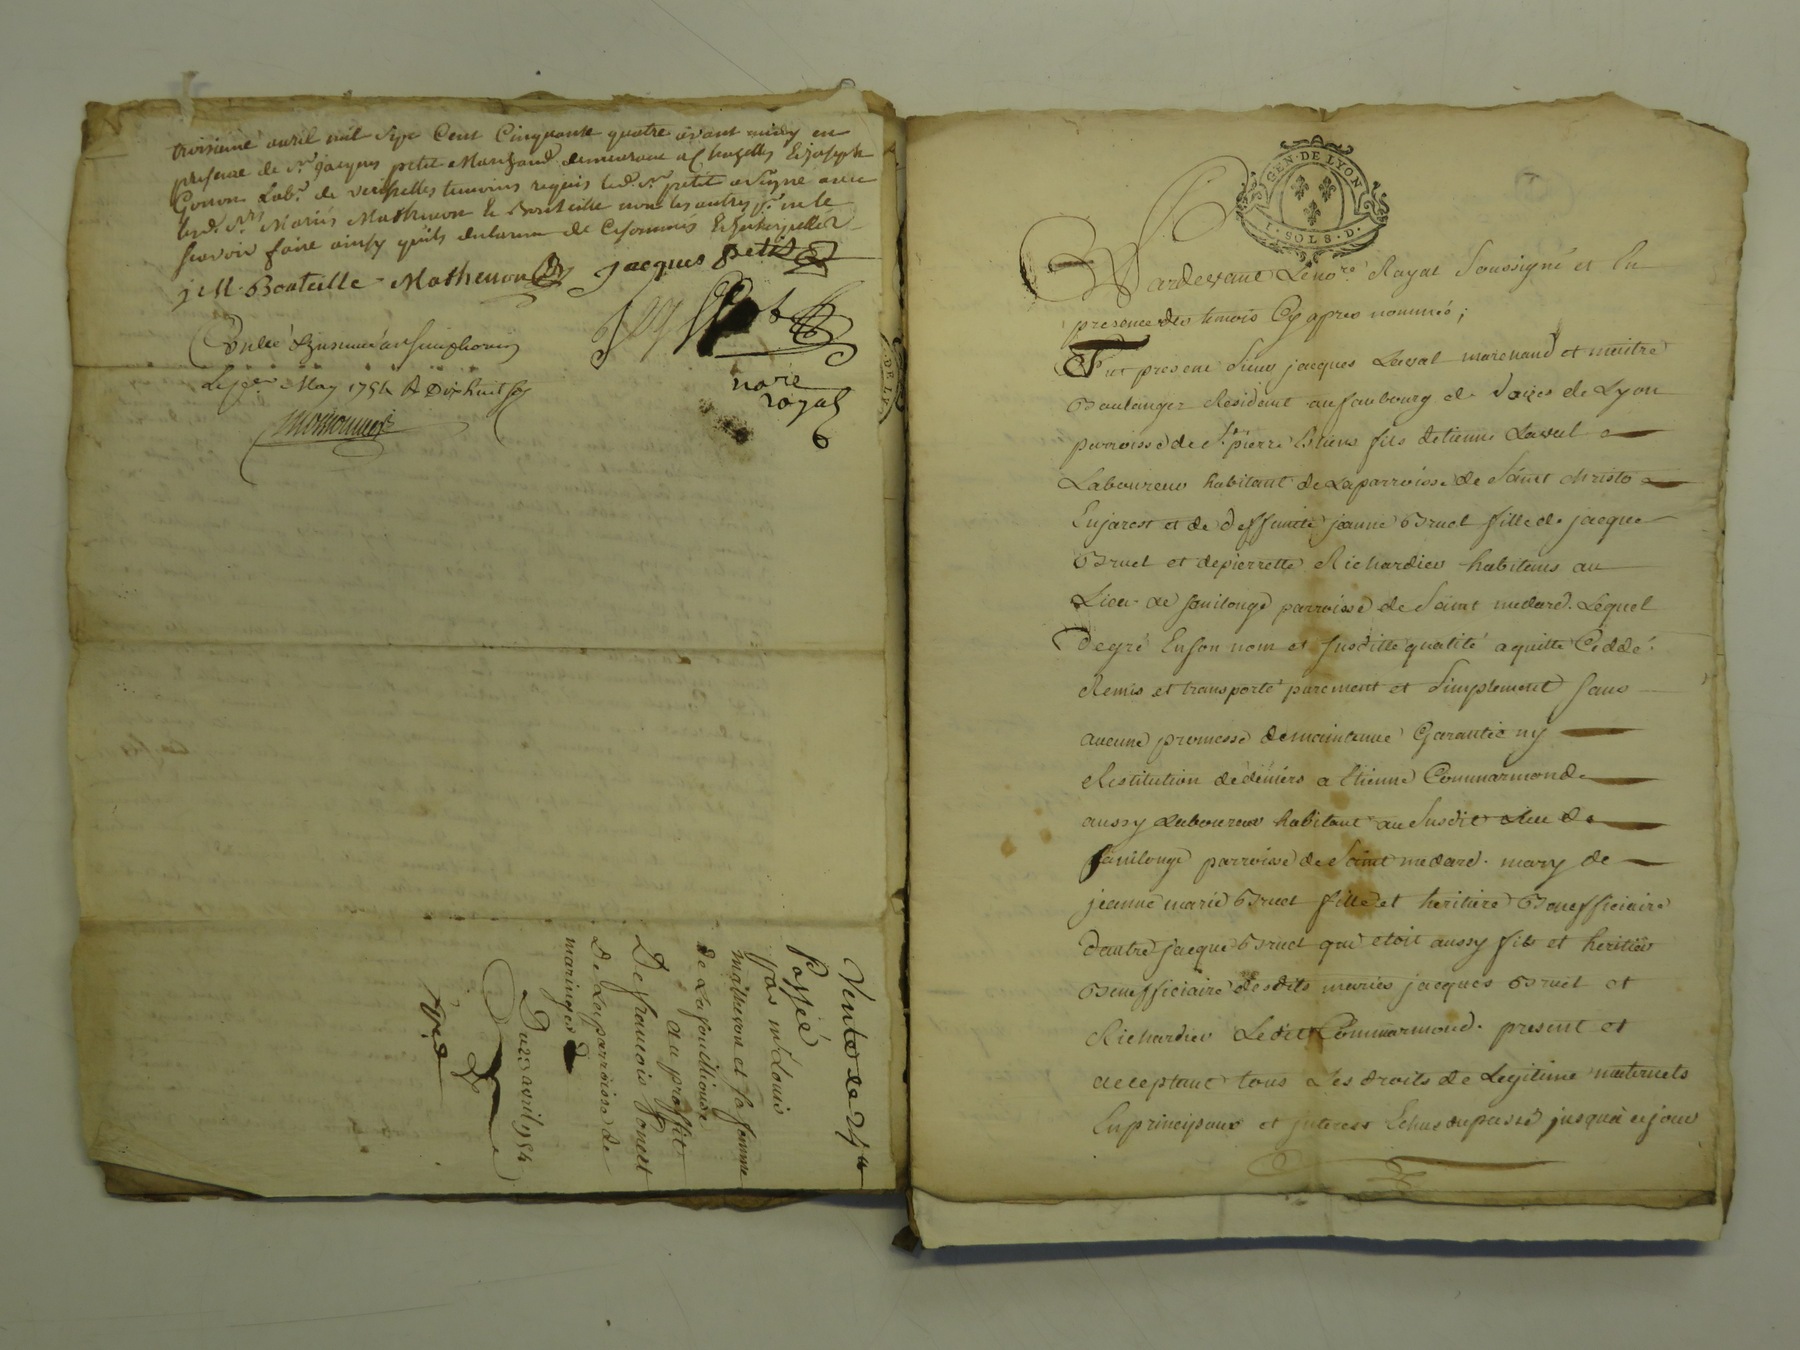 troisieme avril mil Sept Cent Cinquante quatre avant midy en
presence de Sr. jacques petit Marchand demeurant a Chazelles & joseph
Gonon Labr. de verchelles temoins requis led. Sr. petit a Signé avec
lesd. Srs Mariés Mathevon & Bouteille non les autres pr. ne le
scavoir faire ainsy quils declarent de Ce sommés & Interpellés
j M. Bouteille Mathevon jacques petit
nore
royal
Conllé
Le 1er May 1754 R Dix huit s
Vente de
Passée
par mr. Louis
mathevon et sa femme
de La fouillouse
au proffit
De francois
De La parroisse de
maringes
Du 23 avril 1754
GEN. DE LYON
1. SOLS. D.
Pardevant Le nore. Royal Soussigné et En
presence des temoins Cy apres nommés ;
Fut present Sieur jacques Laval marchand et maitre
Boulanger Resident au faubourg de Vaizes de Lyon
parroisse de St. pierre Estienne fils detienne Laval
Laboureur habitant de La parroisse de Saint christo
En jarest et de deffunte jeanne Bruel fille de jacque
Bruel et de pierrette Richardier habitans au
Lieu de parroisse de Saint medard. Lequel
De gré En son nom et susditte qualité a quitte Ceddé
Remis et transporté purement et Simplement Sans
aucune promesse de maintenue Garantie ny
Restitution de deniers a Etienne Commarmond
aussy Laboureur habitant au Susdit Lieu de
parroisse de Saint medard. mary de
jeanne marie Bruel fille et heritiere Benefficiaire
dautre jacque Bruel qui etoit aussy fils et heritier
Benefficiaire desdits mariés jacques Bruel et
Richardier Ledit Commarmond. present et
acceptant tous Les droits de Legitime maternels
En principaux et jnterest Echus du passé jusqua ce jour